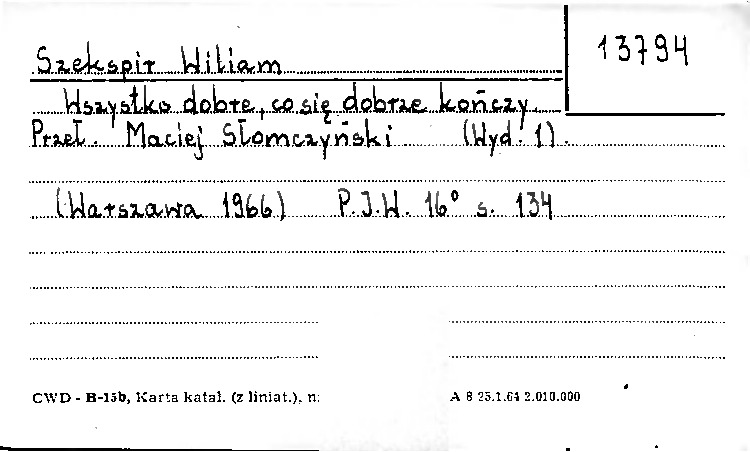 13794
Szekspir Wiliam
Wszystko dobre, co się dobrze kończy.
Przeł. Maciej Słomczyński (Wyd. 1).
(Warszawa 1966) P.I.W. 16° s. 134
CWD - B-15b, Karta katal. (z liniat.), n: A 8 25.1.64 2.010.000